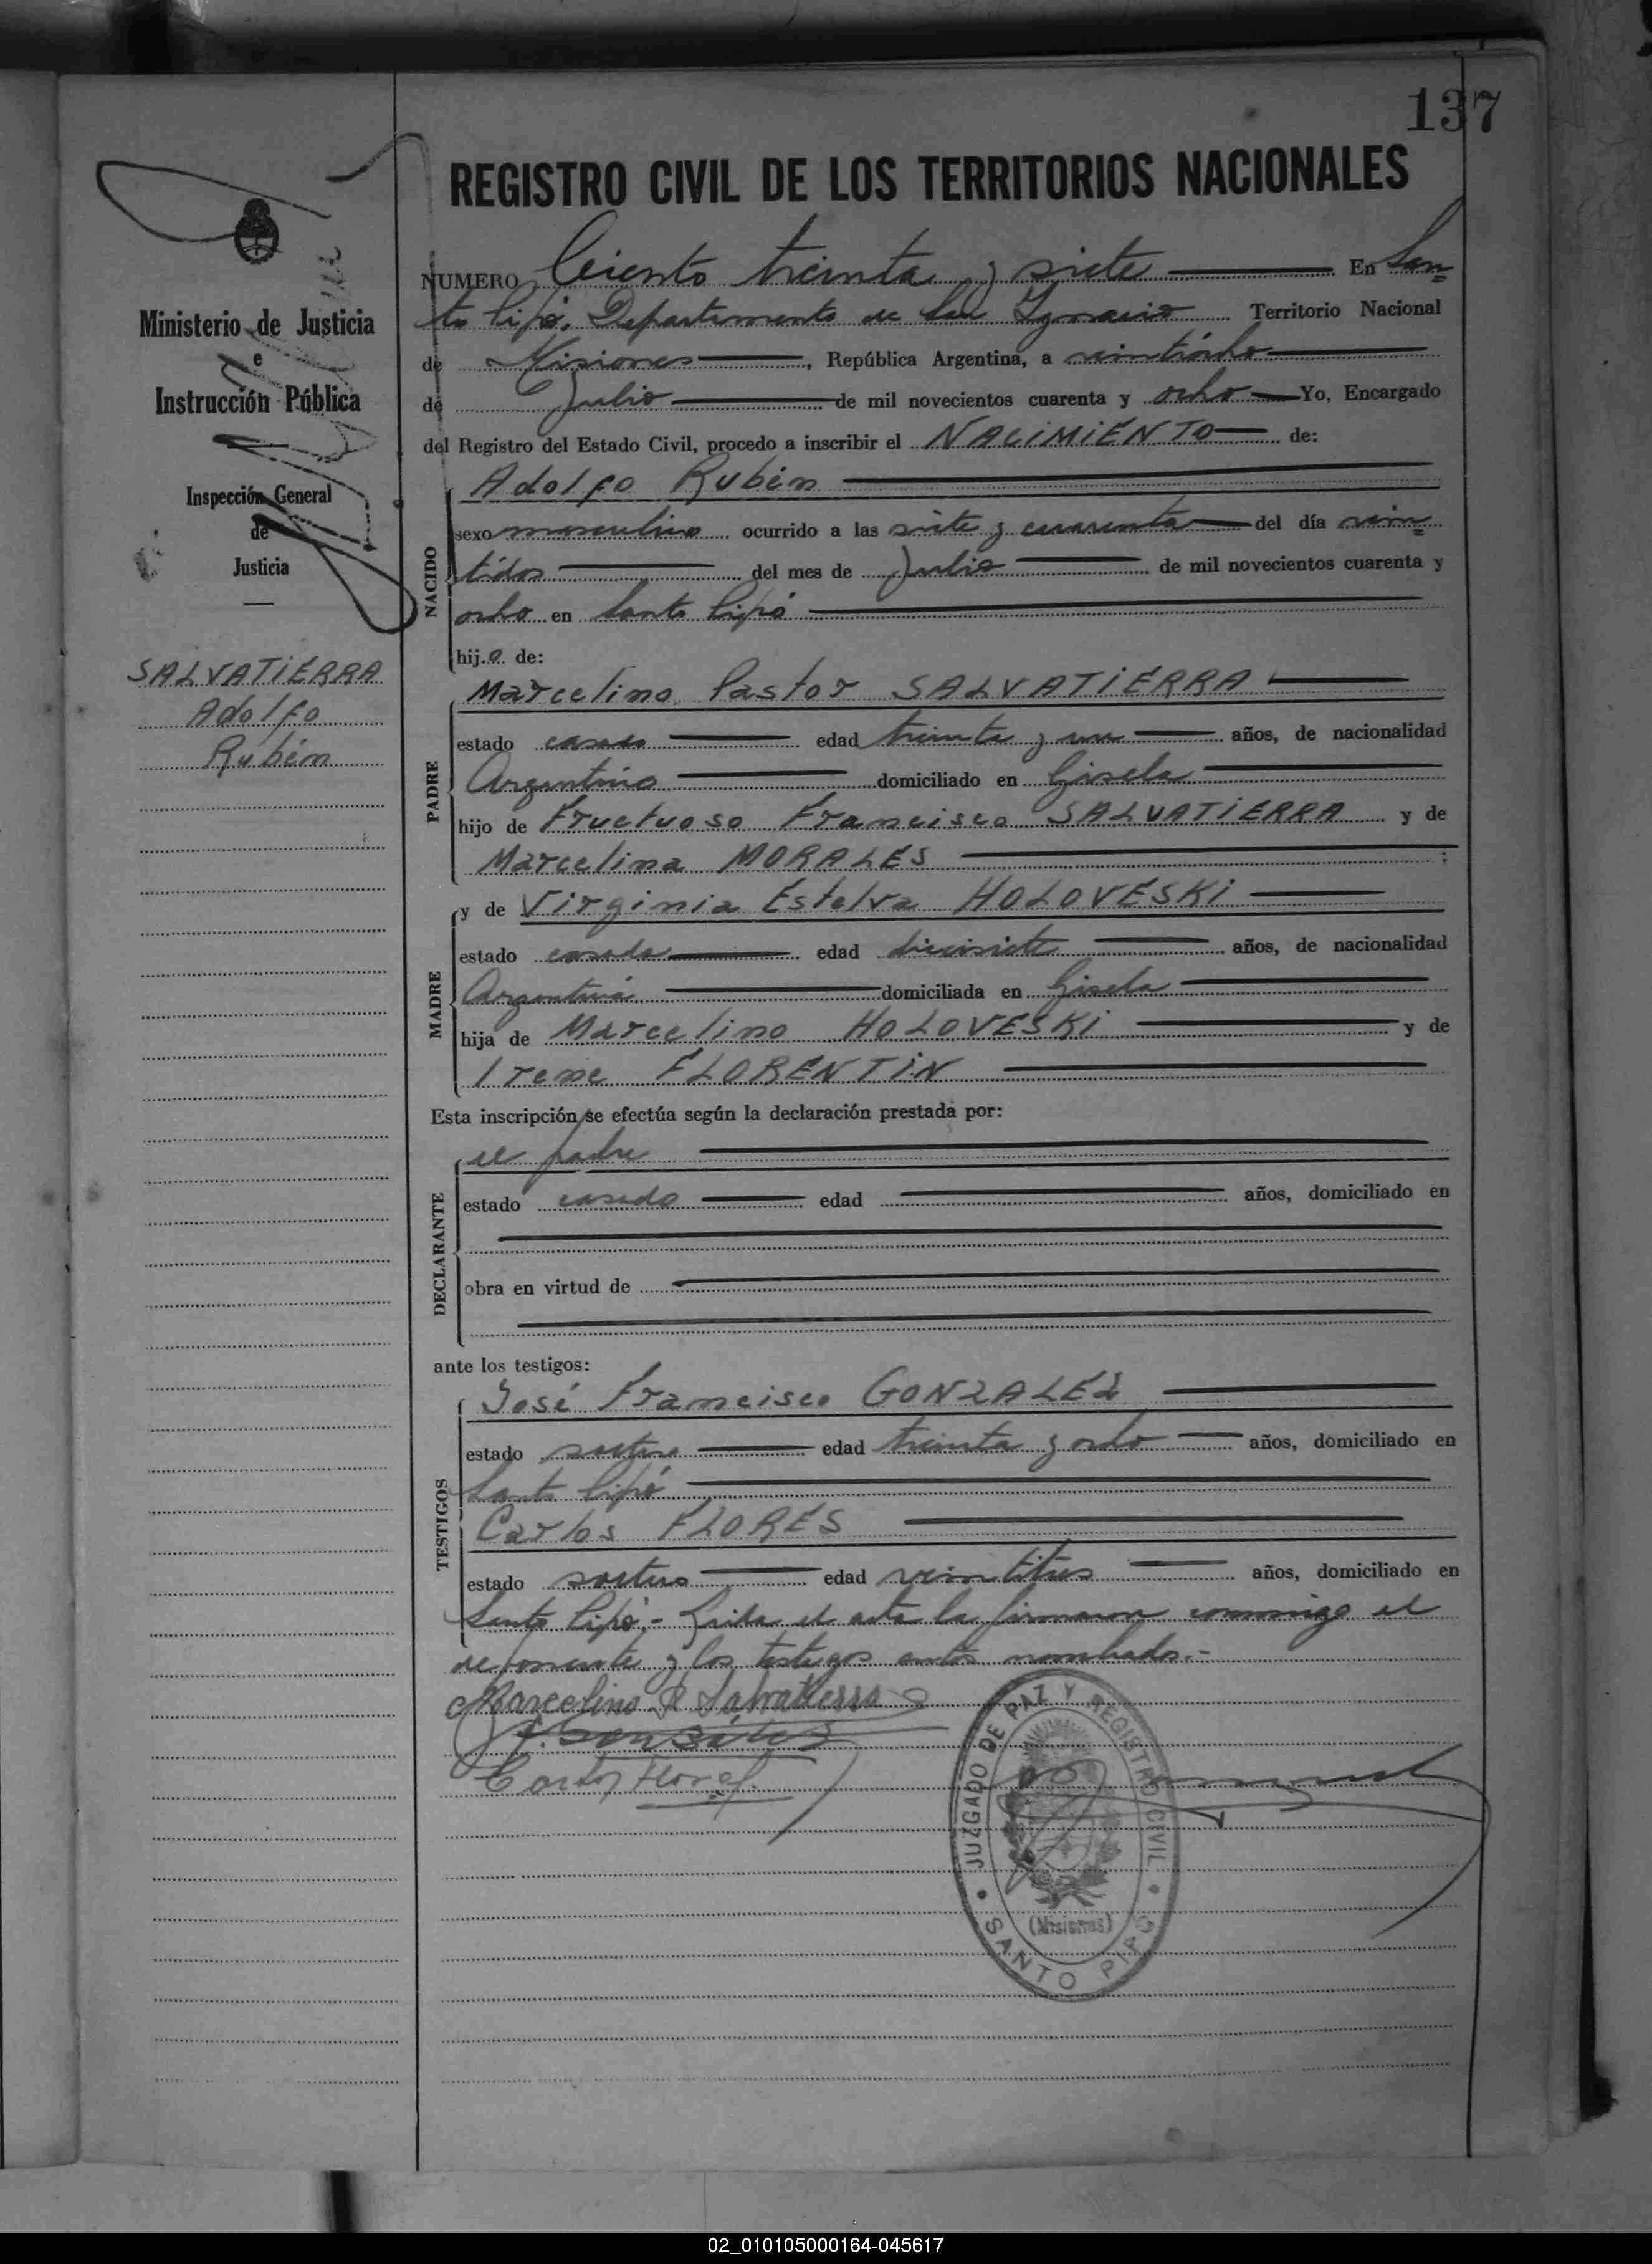 137
REGISTRO CIVIL DE LOS TERRITORIOS NACIONALES
Ministerio de Justicia
e
Instrucción Pública
Inspección General
de
Justicia
SALVATIERRA
Adolfo
Rubén
NUMERO Ciento treinta y siete En San=
to Pipó, Departamento de San Ignacio Territorio Nacional
de Misiones, República Argentina, a veintiocho
de Julio de mil novecientos cuarenta y ocho Yo, Encargado
del Registro del Estado Civil, procedo a inscribir el NACIMIENTO de:
Adolfo Rubén
NACIDO
sexo masculino ocurrido a las siete y cuarenta del día vein=
tidos del mes de Julio de mil novecientos cuarenta y
ocho en Santo Pipó
hij.o. de:
PADRE
Marcelino Pastor SALVATIERRA
estado casado edad treinta y un años, de nacionalidad
Argentino domiciliado en Gisela
hijo de Fructuoso Francisco SALVATIERRA y de
Marcelina MORALES ;
MADRE
y de Virginia Estelva HOLOVESKI
estado casada edad diecisiete años, de nacionalidad
Argentina domiciliada en Gisela
hija de Marcelino HOLOVESKI y de
Irene FLORENTIN
Esta inscripción se efectúa según la declaración prestada por:
DECLARANTE
el padre
estado casado edad años, domiciliado en
obra en virtud de
ante los testigos:
TESTIGOS
José Francisco GONZALEZ
estado soltero edad treinta y ocho años, domiciliado en
Santo Pipó
Carlos FLORES
estado soltero edad veintitres años, domiciliado en
Santo Pipó.- Leida el acta la firmaron conmigo el
deponente y los testigos antes nombrados.-
Marcelino P. Salvatierra
J. F. González
Carlos Flores.
JUZGADO DE PAZ Y REGISTRO CIVIL
(Misiones)
SANTO PIPÓ
02_010105000164-045617